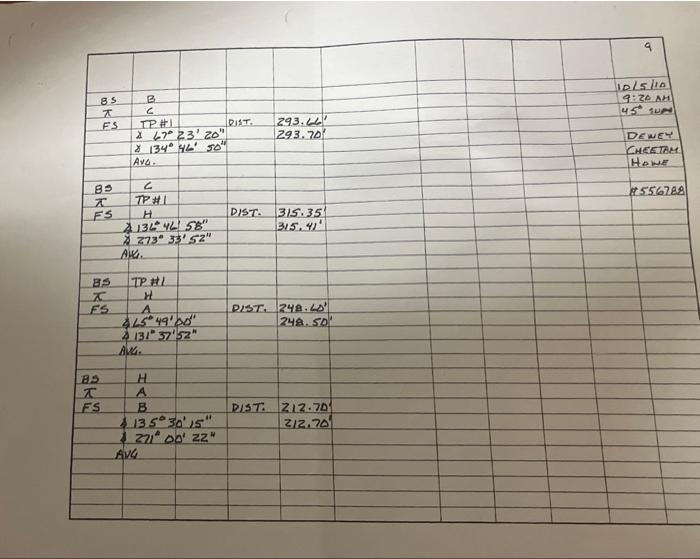 9
10/5/10
9:20 AM
45° SUNNY
DEWEY
CHEETAM
HOWE
#556788
BS B
⊼ C
FS TP#1 DIST. 293.66'
∡ 67° 23' 20" 293.70'
∡ 134° 46' 50"
AVG.
BS C
⊼ TP#1
FS H DIST. 315.35'
∡ 136° 46' 58" 315.41'
∡ 273° 33' 52"
AVG.
BS TP#1
⊼ H
FS A DIST. 248.60'
∡ 65° 49' 00" 248.50'
∡ 131° 37' 52"
AVG.
BS H
⊼ A
FS B DIST. 212.70'
∡ 135° 30' 15" 212.70'
∡ 271° 00' 22"
AVG